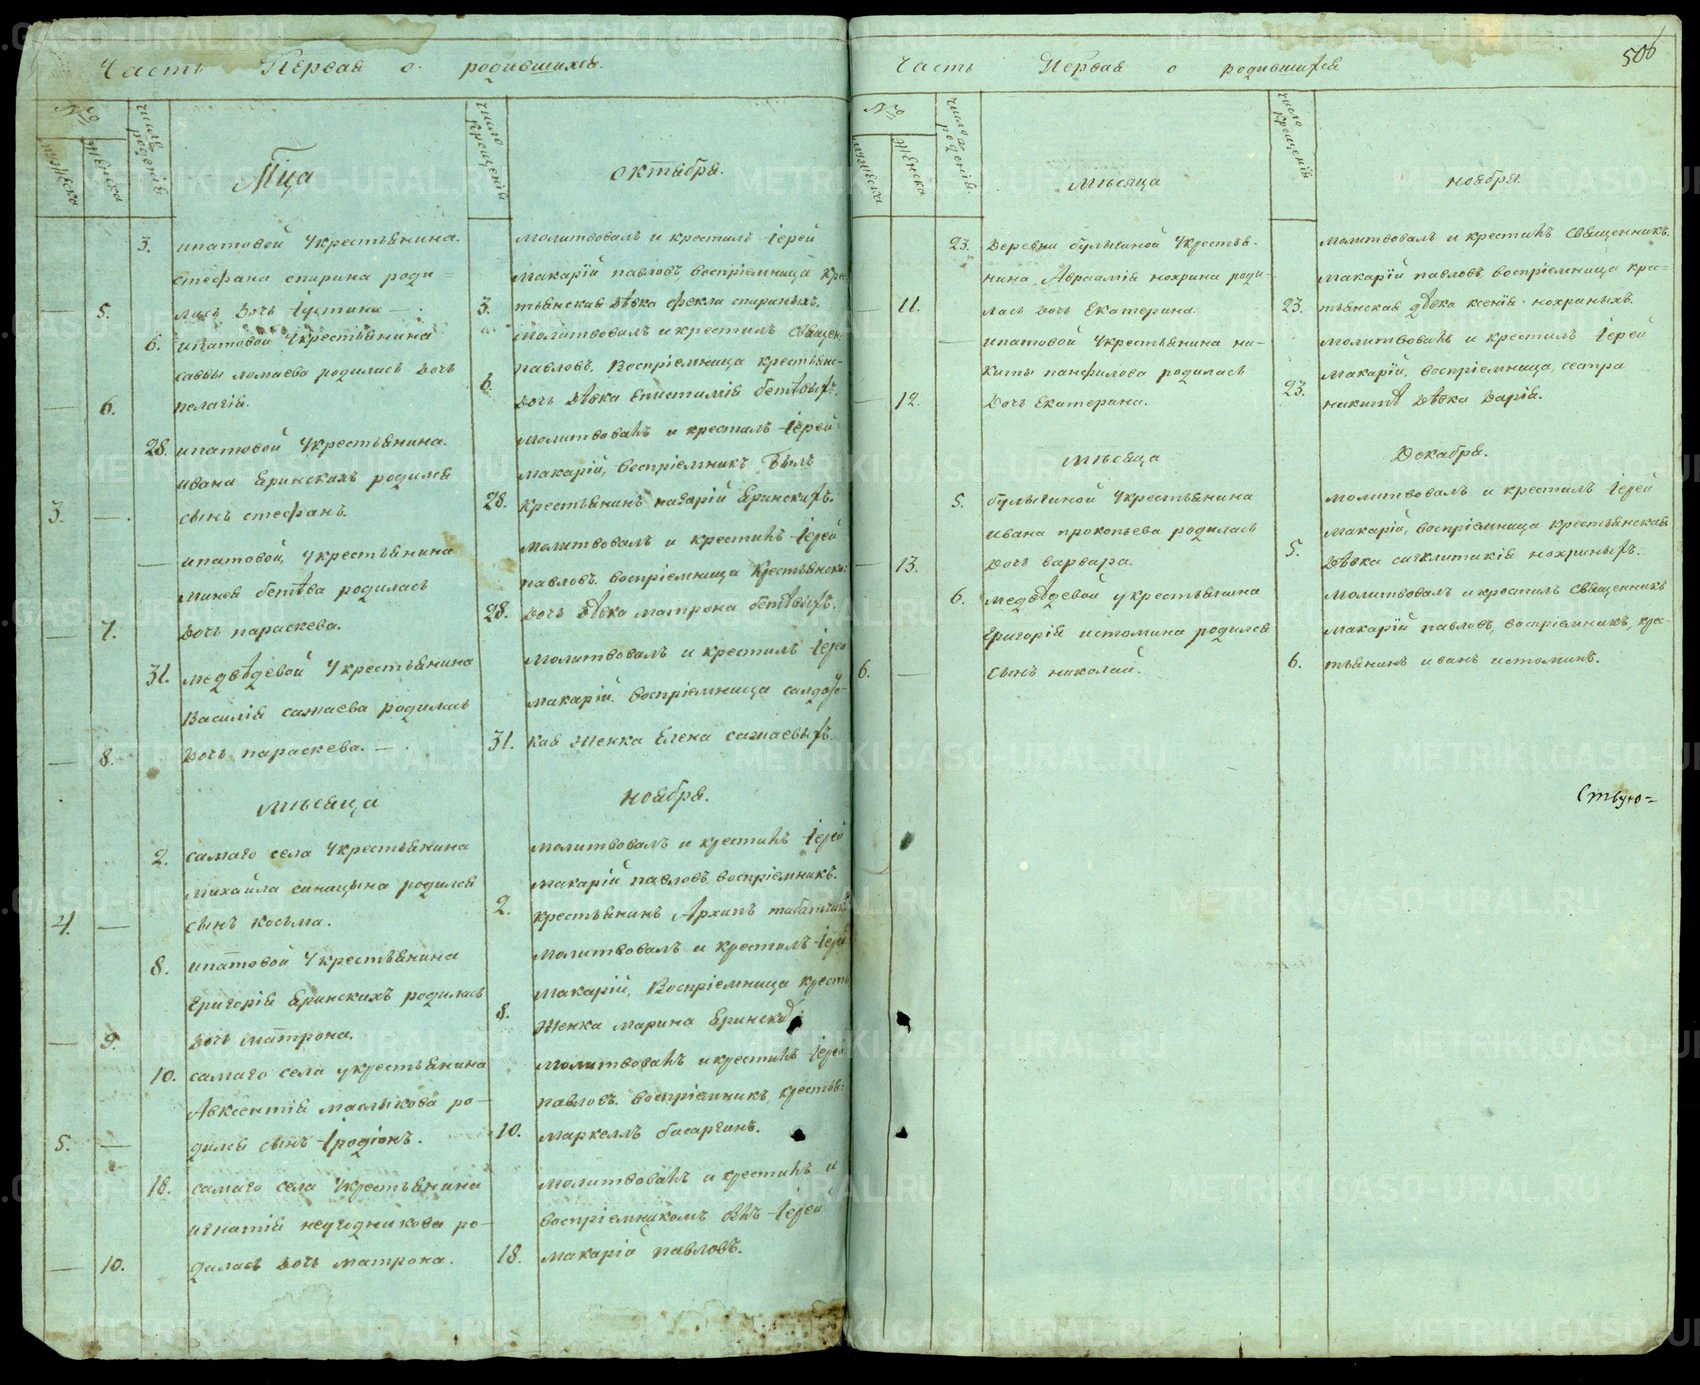 Часть Первая о родившихся.
№
мужска
женска
Число рожденiя
Мца
Число крещенiя
октября.
3. ипатовой Укрестьянина.
стефана спирина роди=
5. лась дочь Iустина
молитвовалъ и крестилъ Iерей
макарiй павловъ воспрiемница кре
3. тьянская дѣвка фекла спириныхъ.
6. ипатовой Укрестьянина
саввы ломаева родилась дочь
6. пелагiя.
молитвовалъ и крестилъ священ.
павловъ. Воспрiемница крестьян-
6. дочь дѣвка Епистимiя бетѣвыхъ.
28. ипатовой Укрестьянина.
ивана Бринскихъ родился
3. сынъ стефанъ.
молитвовалъ и крестилъ Iерей
макарiй, воспрiемникъ былъ
28. крестьянинъ назарiй Бринскихъ.
ипатовой, Укрестьянина
минея бетѣва родилась
7. дочь параскева.
молитвовалъ и крестилъ Iерей
павловъ. воспрiемница крестьянска:
28. дочь дѣвка матрона бетѣвыхъ.
31. медвѣдевой Укрестьянина
Василiя сажаева родилась
8. дочь параскева.
молитвовалъ и крестилъ Iерей
макарiй. воспрiемница салдат-
31. кая женка Елена сажаевыхъ.
мѣсяца ноября.
2. самаго села Укрестьянина
михайла синицына родился
4. сынъ косьма.
молитвовалъ и крестилъ Iерей
макарiй павловъ, воспрiемникъ.
2. крестьянинъ Архипъ табатчик
8. ипатовой Укрестьянина
григорiя Бринскихъ родилась
9. дочь матрона.
молитвовалъ и крестилъ Iерей
макарiй, Воспрiемница крест
8. женка марина Бринских
10. самаго села укрестьянина
Авксентiя маслыкова ро-
5. дился сынъ Iродiонъ.
молитвовалъ и крестилъ Iерей
павловъ. воспрiемникъ, крестья:
10. маркеллъ басаргинъ.
18. самаго села Укрестьянина
игнатiя неугодникова ро-
10. дилась дочь матрона.
молитвовалъ и крестилъ и
воспрiемникомъ былъ Iерей
18. макарiй павловъ.
Часть Первая о родившихся
506
№
мужска
женска
число рожденiя
мѣсяца
число крещенiй
ноября.
23. деревни булыгиной Укрестья-
нина Авраамiя нохрина роди
11. лась дочь Екатерина.
молитвовалъ и крестилъ Священникъ.
макарiй павловъ воспрiемница крес=
23. тьянская дѣвка ксенiя нохриныхъ.
ипатовой Укрестьянина ни-
киты панфилова родилась
12. дочь Екатерина.
молитвовалъ и крестилъ Iерей
макарiй, воспрiемница, сестра
23. никитѣ дѣвка дарiя.
мѣсяца Декабря.
5. булыгиной Укрестьянина
ивана прокопьева родилась
13. дочь варвара.
молитвовалъ и крестилъ Iерей
макарiй, воспрiемница крестьянская
5. дѣвка сигклитикiя нохриныхъ.
6. медвѣдевой укрестьянина
григорiя истомина родился
6. сынъ николай.
молитвовалъ и крестилъ Священникъ
макарiй павловъ, воспрiемникъ, кре-
6. тьянинъ иванъ истоминъ.
METRIKI.GASO-URAL.RU